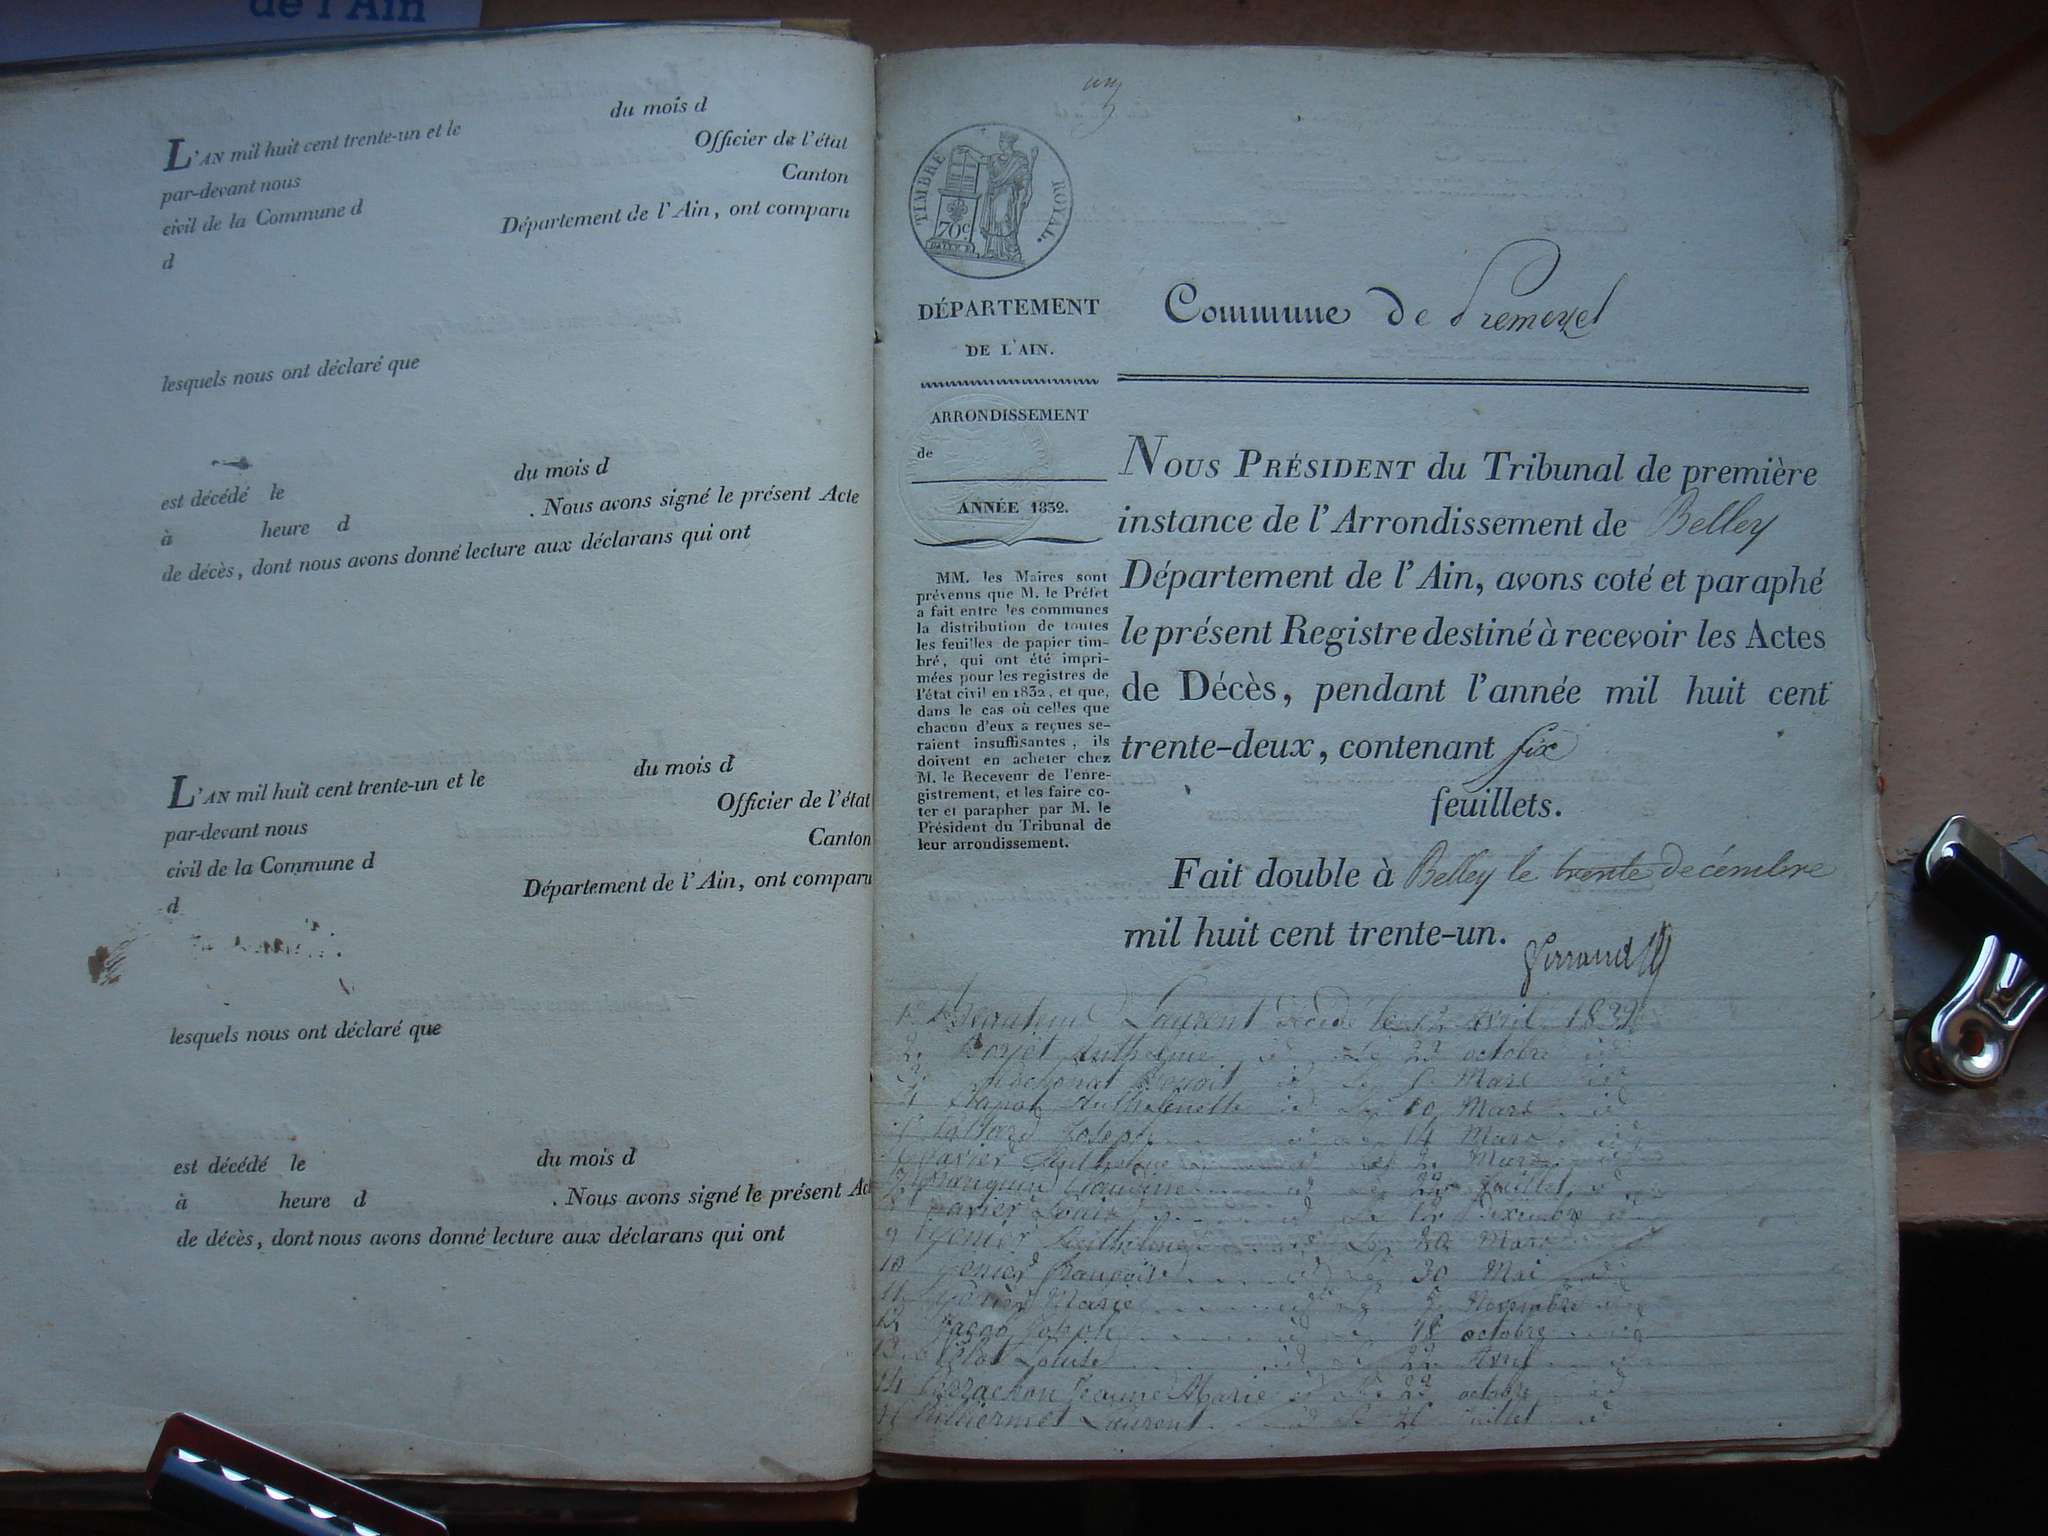 de l'Ain
du mois d
L'AN mil huit cent trente-un et le
Officier de l'état
par-devant nous
Canton
civil de la Commune d
Département de l'Ain, ont comparu
d
lesquels nous ont déclaré que
du mois d
est décédé le
. Nous avons signé le présent Acte
à heure d
de décès, dont nous avons donné lecture aux déclarans qui ont
du mois d
L'AN mil huit cent trente-un et le
Officier de l'état
par-devant nous
Canton
civil de la Commune d
Département de l'Ain, ont comparu
d
lesquels nous ont déclaré que
est décédé le du mois d
à heure d . Nous avons signé le présent Ac
de décès, dont nous avons donné lecture aux déclarans qui ont
un
TIMBRE ROYAL.
70c
DÉPARTEMENT
DE L'AIN.
ARRONDISSEMENT
de
ANNÉE 1832.
MM. les Maires sont
prévenus que M. le Préfet
a fait entre les communes
la distribution de toutes
les feuilles de papier tim-
bré, qui ont été impri-
mées pour les registres de
l'état civil en 1832, et que,
dans le cas où celles que
chacun d'eux a reçues se-
raient insuffisantes, ils
doivent en acheter chez
M. le Receveur de l'enre-
gistrement, et les faire co-
ter et parapher par M. le
Président du Tribunal de
leur arrondissement.
Commune de Premeyzel
NOUS PRÉSIDENT du Tribunal de première
instance de l'Arrondissement de Belley
Département de l'Ain, avons coté et paraphé
le présent Registre destiné à recevoir les Actes
de Décès, pendant l'année mil huit cent
trente-deux, contenant six
feuillets.
Fait double à Belley le trente decembre
mil huit cent trente-un.
1 Laurent décédé le 12 Avril 1832
2 Anthelme id le 23 octobre id
3 Benoit id le Mars id
4 Anthelmette id le 10 Mars id
Joseph id le 14 Mars id
6 Anthelme id le 2 Mars id
7 Claudine id le 22 Juillet id
8 Louis id le id
9 id le 20 Mars
10 Françoise id le 30 Mai id
11 Marie id le Novembre id
12 Joseph id le 18 octobre id
13 Louise id le 22 Avril id
14 Jeanne Marie id le 23 octobre id
Laurent id le Juillet id